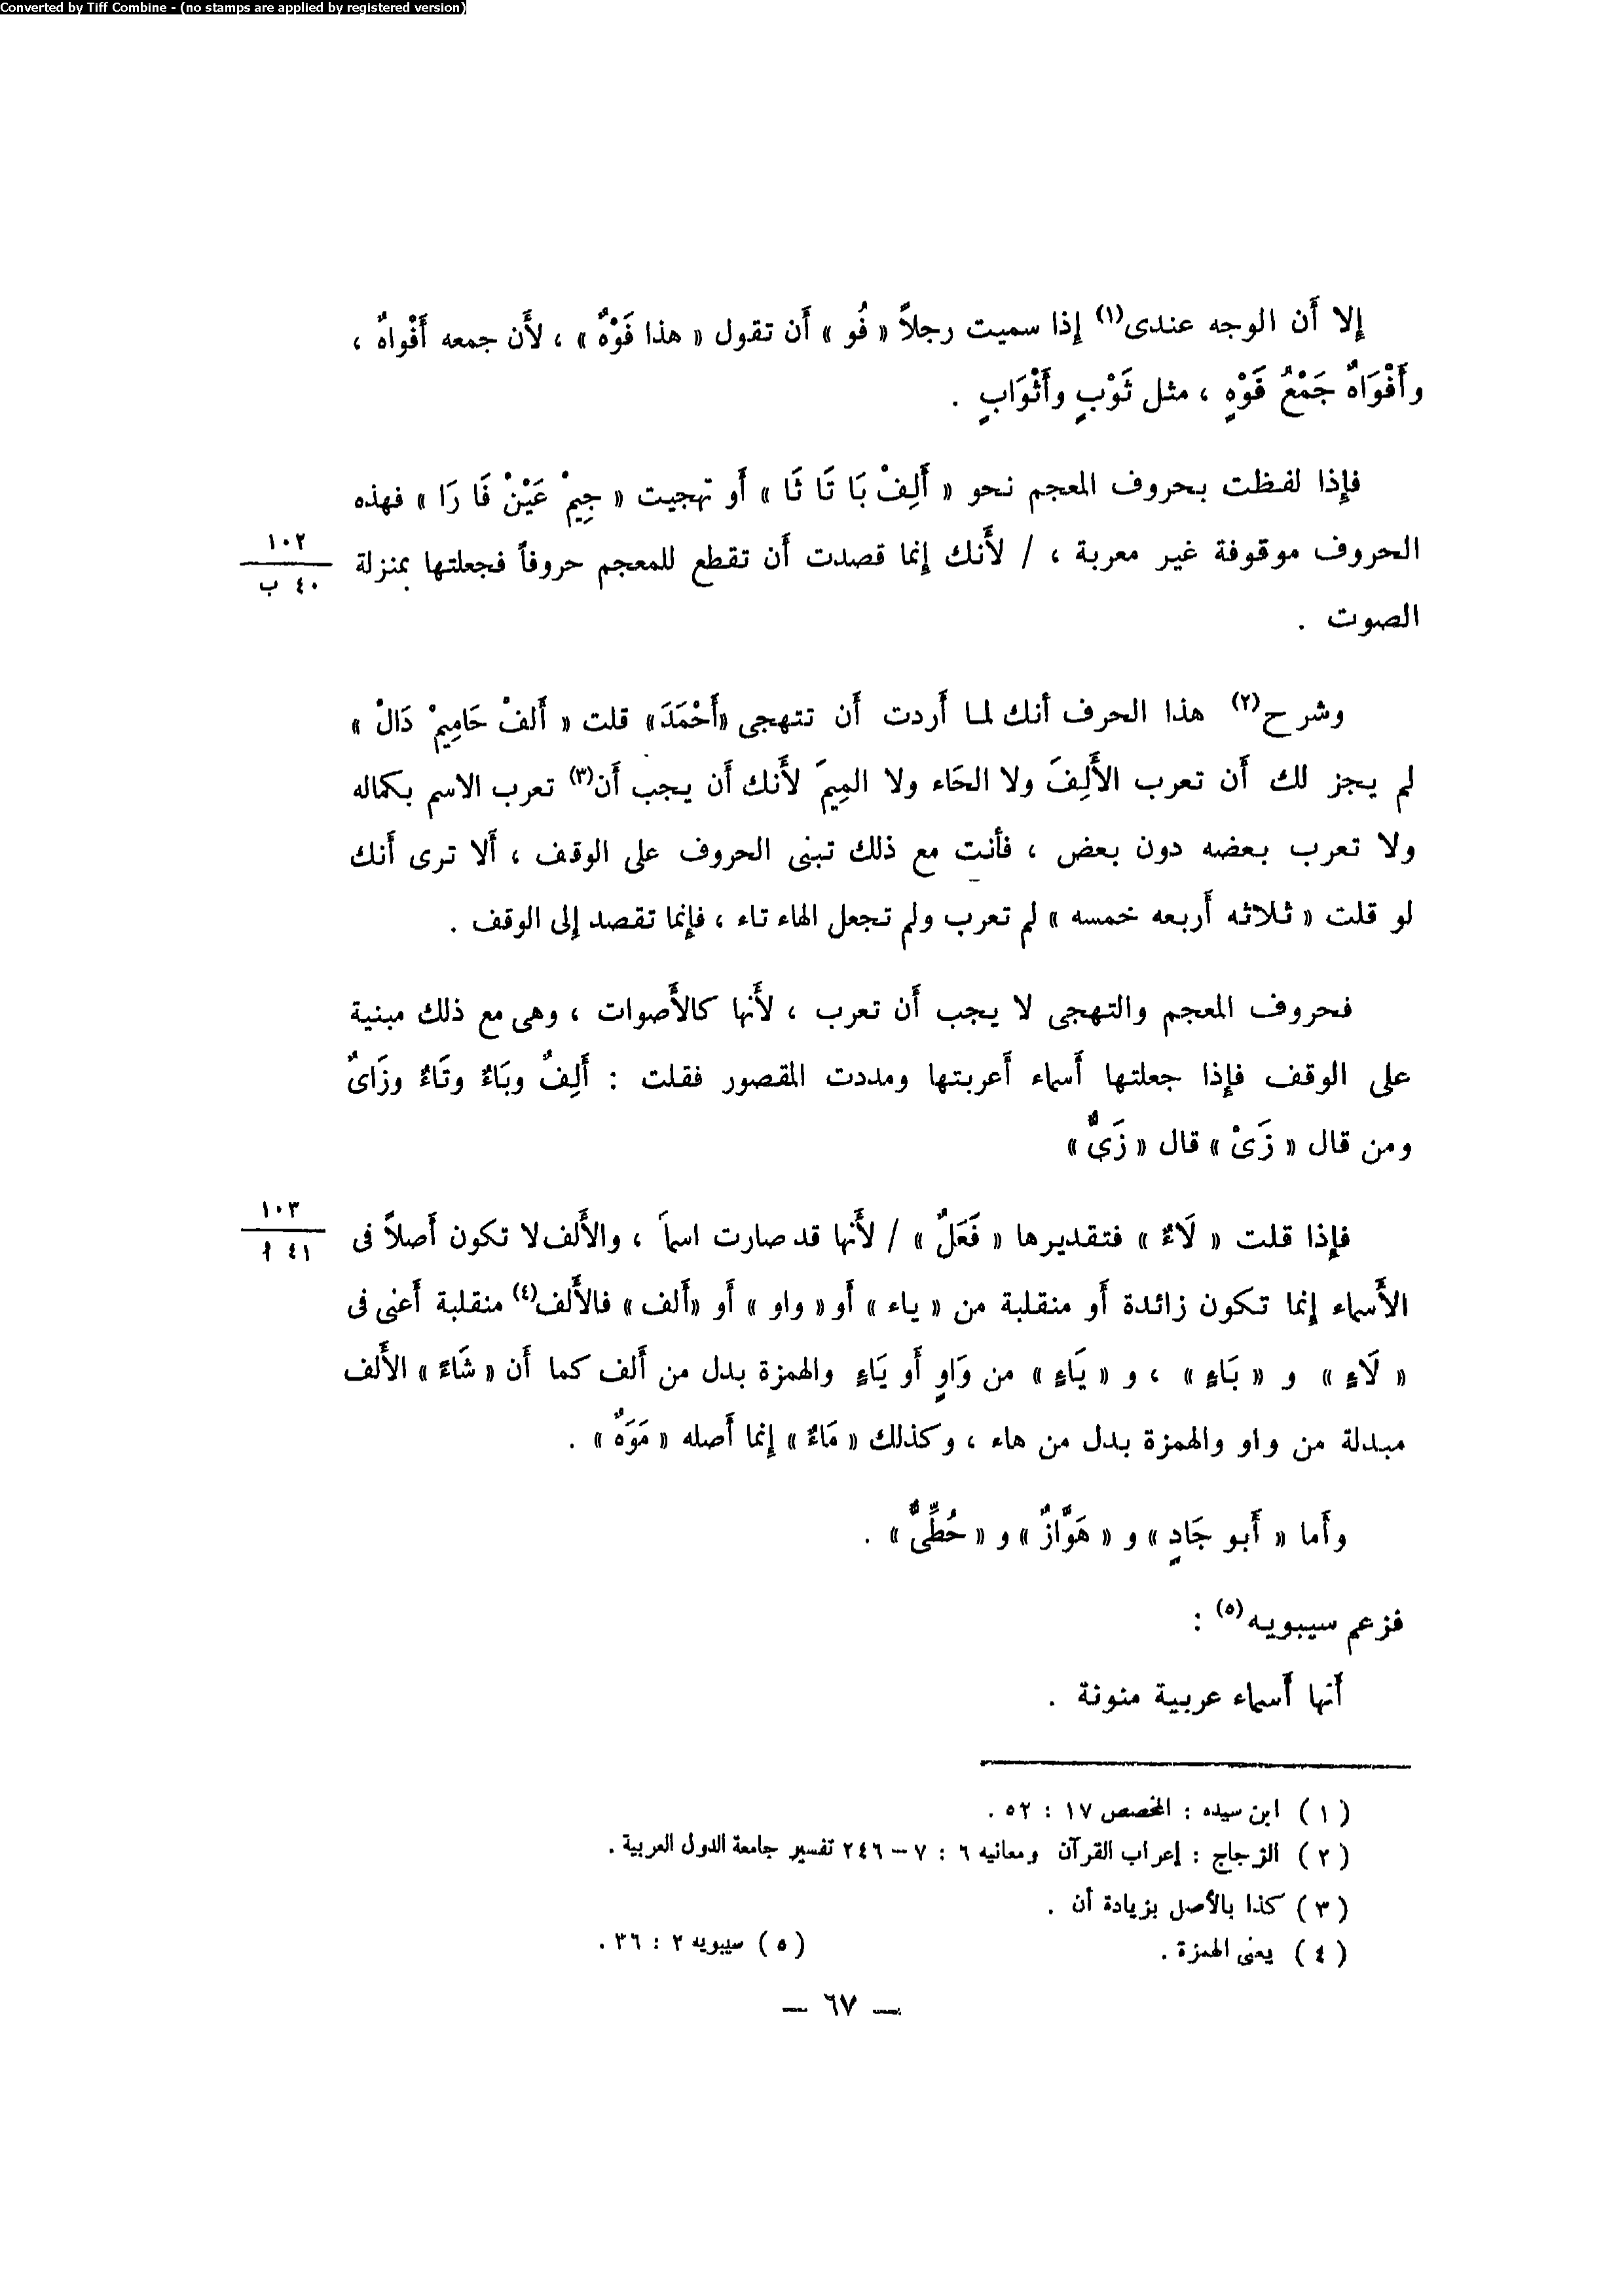 Converted by Tiff Combine - (no stamps are applied by registered version)
إلا أَن الوجه عندى(١) إذا سميت رجلاً « فُو » أَن تقول « هذا فَوْهٌ » ، لأَن جمعه أَفْواهٌ ،
وأَفْوَاهٌ جَمْعُ فَوْهٍ ، مثل ثَوْبٍ وأَثْوَابٍ .
فإِذا لفظت بحروف المعجم نحو « أَلِفْ بَا تَا ثَا » أَو تهجيت « جِيمْ عَيْنْ فَا رَا » فهذه
الحروف موقوفة غير معربة ، / لأَنك إِنما قصدت أَن تقطع للمعجم حروفاً فجعلتها بمنزلة
١٠٢
٤٠ ب
الصوت .
وشرح(٢) هذا الحرف أنك لما أَردت أَن تتهجى «أَحْمَدَ» قلت « أَلفْ حَامِيمْ دَالْ »
لم يجز لك أَن تعرب الأَلِفَ ولا الحَاء ولا المِيمَ لأَنك أَن يجب أَن(٣) تعرب الاسم بكماله
ولا تعرب بعضه دون بعض ، فأَنت مع ذلك تبنى الحروف على الوقف ، أَلا ترى أَنك
لو قلت « ثلاثه أَربعه خمسه » لم تعرب ولم تجعل الهاء تاء ، فإِنما تقصد إِلى الوقف .
فحروف المعجم والتهجى لا يجب أَن تعرب ، لأَنها كالأَصوات ، وهى مع ذلك مبنية
على الوقف فإِذا جعلتها أَسماء أَعربتها ومددت المقصور فقلت : أَلِفٌ وبَاءٌ وتَاءٌ وزَاىٌ
ومن قال « زَىْ » قال « زَىٌّ »
فإِذا قلت « لَاءٌ » فتقديرها « فَعَلٌ » / لأَنها قد صارت اسماً ، والأَلف لا تكون أَصلاً فى
١٠٣
٤١ أ
الأَسماء إِنما تكون زائدة أَو منقلبة من « ياء » أَو « واو » أَو «أَلف » فالأَلف(٤) منقلبة أَعنى فى
« لَاءٍ » و « بَاءٍ » ، و « يَاءٍ » من وَاوٍ أَو يَاءٍ والهمزة بدل من أَلف كما أَن « شَاءً » الأَلف
مبدلة من واو والهمزة بدل من هاء ، وكذلك « مَاءٌ » إِنما أَصله « مَوَهٌ » .
وأَما « أَبو جَادٍ » و « هَوَّازٌ » و « حُطِّىٌّ » .
فزعم سيبويه(٥) :
أَنها أَسماء عربية منونة .
( ١ ) ابن سيده : المخصص ١٧ : ٥٢ .
( ٢ ) الزجاج : إعراب القرآن ومعانيه ٦ : ٧ – ٢٤٦ تفسير جامعة الدول العربية .
( ٣ ) كذا بالأصل بزيادة أن .
( ٤ ) يعنى الهمزة . ( ٥ ) سيبويه ٢ : ٣٦ .
— ٦٧ —